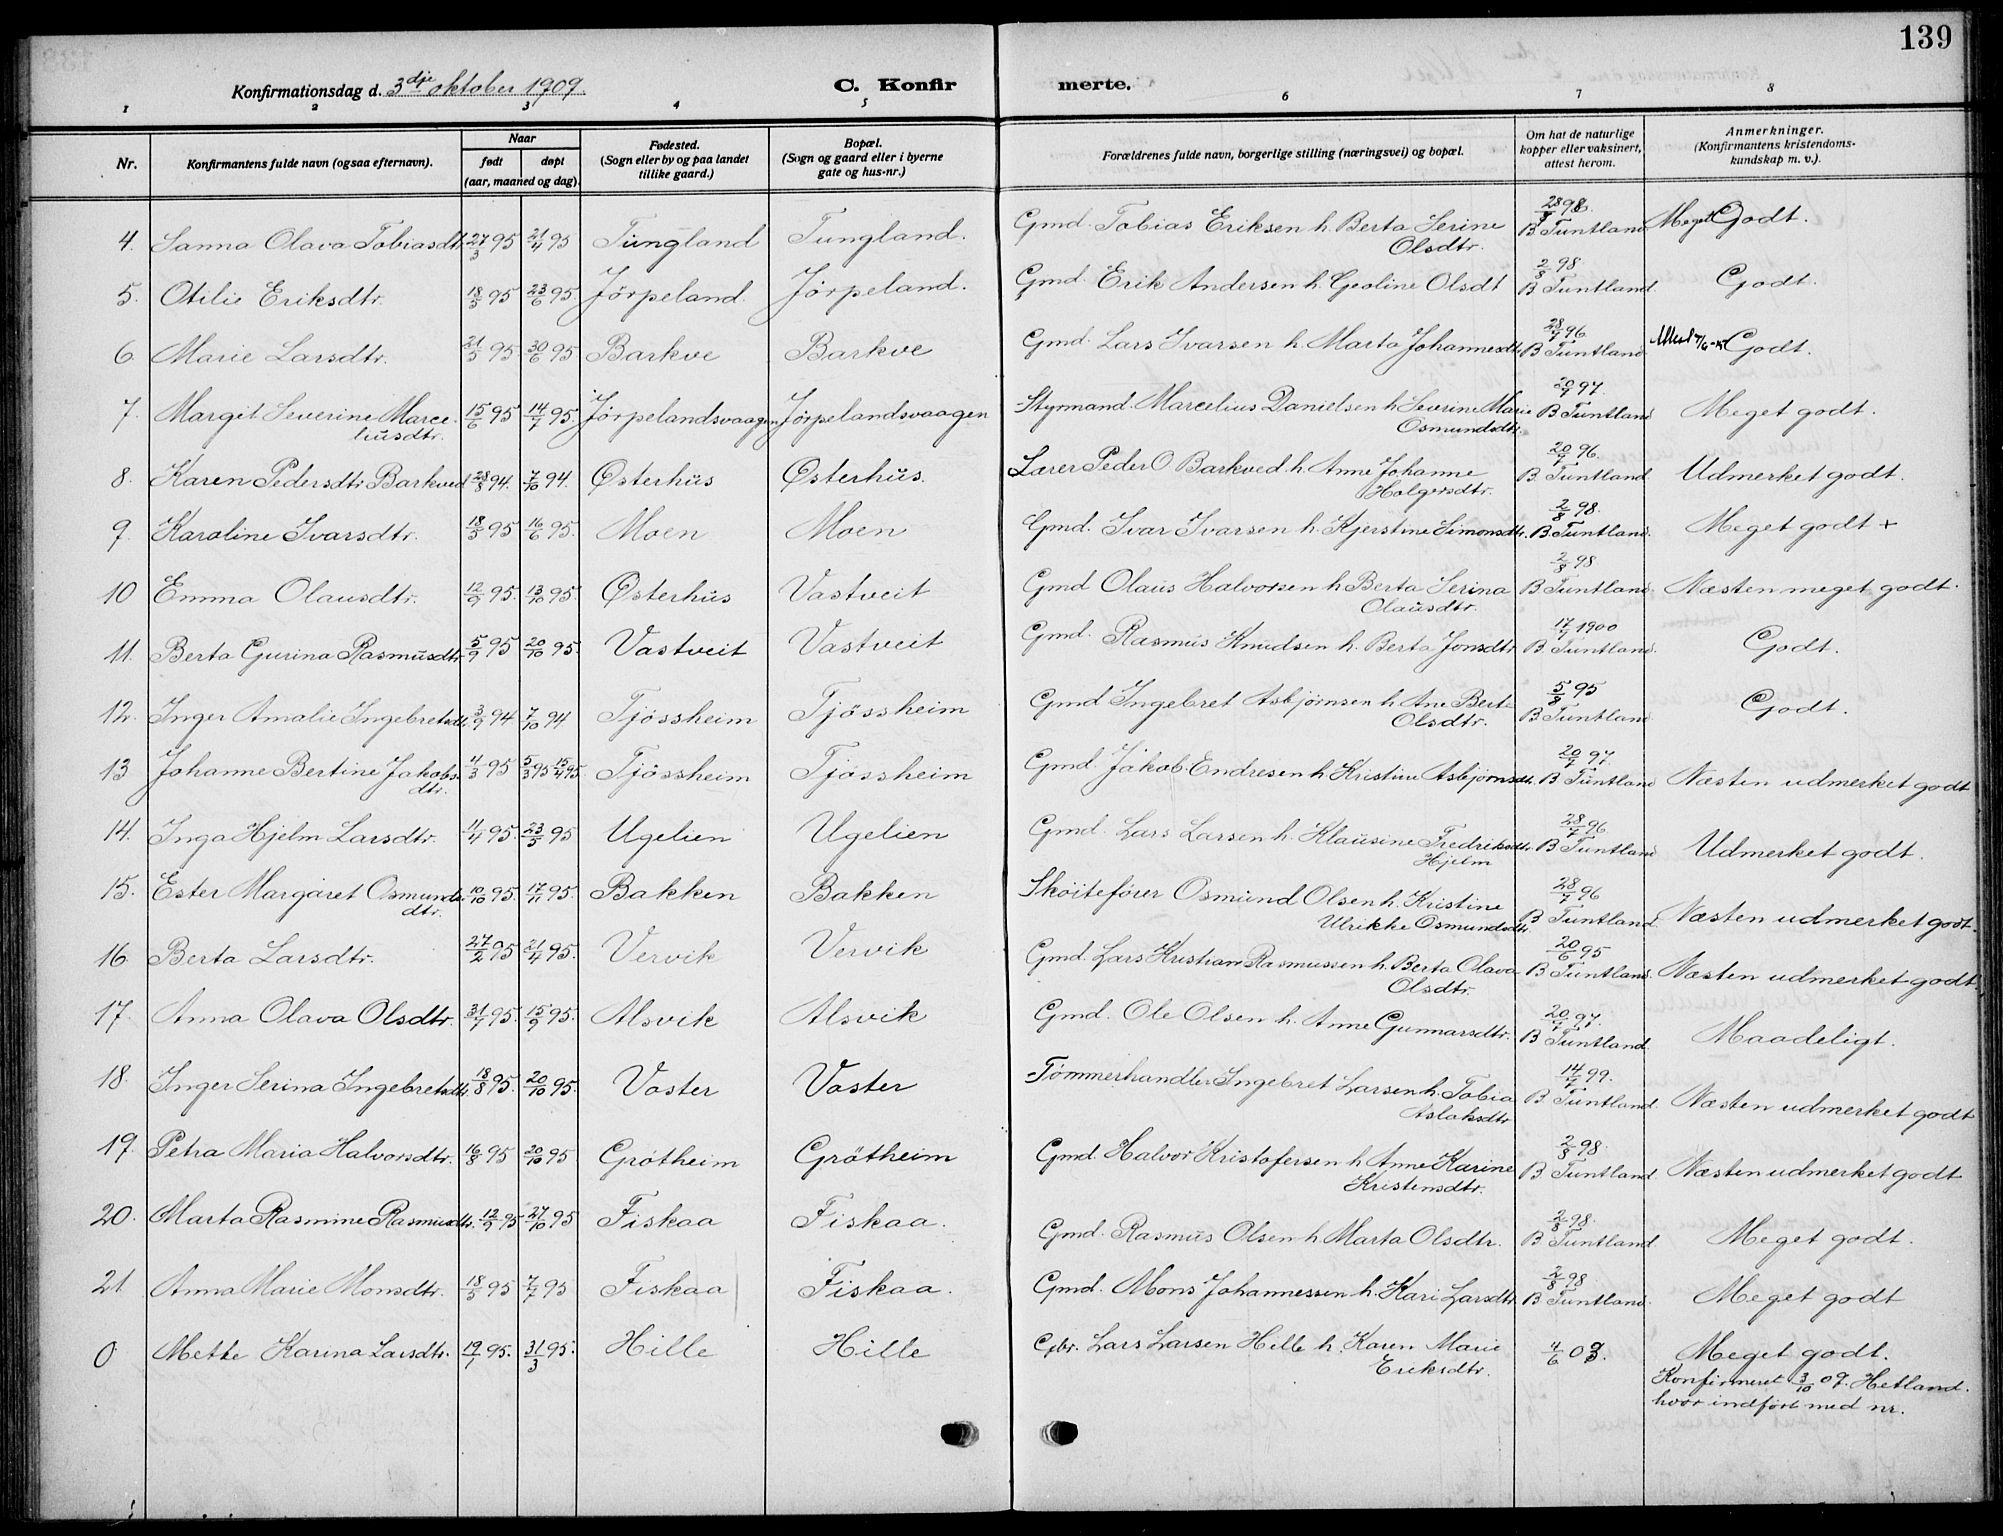 139
Konfirmationsdag d. 3dje oktober 1909.
C. Konfirmerte.
1 2 3 4 5 6 7 8
Nr. Konfirmantens fulde navn (ogsaa efternavn). Naar født døpt (aar, maaned og dag). Fødested. (Sogn eller by og paa landet tillike gaard.) Bopæl. (Sogn og gaard eller i byerne gate og hus-nr.) Forældrenes fulde navn, borgerlige stilling (næringsvei) og bopæl. Om hat de naturlige kopper eller vaksinert, attest herom. Anmerkninger. (Konfirmantens kristendomskundskap m. v.).
4. Sanna Olava Tobiasdtr. 27/3 95 21/4 95 Tungland Tungland. Gmd. Tobias Eriksen h. Berta Serine Olsdtr. 98. B Tuntland Meget Godt.
5. Otilie Eriksdtr. 18/5 95 23/6 95. Jörpeland. Jörpeland. Gmd. Erik Andersen h. Geoline Olsdt 2/8 98 B Tuntland. Godt.
6. Marie Larsdtr. 21/5 95 30/6 95 Barkve Barkve Gmd. Lars Ivarsen h. Marta Johannesdtr. 28/7 96 B Tuntland. Godt.
7. Margit Severine Marceliusdtr. 15/6 95 14/7 95. Jörpelandsvaagen Jörpelandsvaagen Styrmand. Marcelius Danielsen h Severine Marie Osmundsdtr. 20/7 97 B Tuntland Meget godt.
8. Karen Pedersdtr. Barkved 28/8 94. 7/10 94. Østerhus Østerhus. Lærer Peder O Barkved. h. Anne Johanne Holgersdtr. 20/7 96. B Tuntland Udmerket godt.
9. Karoline Ivarsdtr. 18/5 95 16/6 95. Moen Moen Gmd. Ivar Ivarsen h. Kjerstine Simonsdtr. 2/8 98. B. Tuntland. Meget godt +
10 Emma Olausdtr. 12/9 95. 13/10 95. Østerhus Vastveit Gmd Olaus Halvorsen h Berta Serina Olausdtr. 2/8 98 B Tuntland. Næsten meget godt.
11. Berta Gurina Rasmusdtr. 5/9 95 20/10 95. Vastveit Vastveit Gmd. Rasmus Knudsen h. Berta Jonsdtr 17/7 1900 B. Tuntland. Godt.
12. Inger Amalie Ingebretsdtr. 3/9 94 7/10 94 Tjössheim Tjössheim Gmd Ingebret Asbjörnsen h. Ane Berta Olsdtr. 5/8 95 B Tuntland Godt.
13 Johanne Bertine Jakobsdtr. 4/3 95 5/3 95 15/4 95. Tjössheim Tjössheim Gmd. Jakob Endresen h. Kristine Asbjörnsdtr. 20/7 97. B Tuntland Næsten udmerket godt
14. Inga Hjelm Larsdtr. 11/4 95. 23/5 95 Ugelien Ugelien Gmd. Lars Larsen h. Klausine Fredriksdtr. Hjelm 28/7 96 B Tuntland Udmerket godt.
15. Ester Margaret Osmundsdtr. 10/10 95. 17/11 95. Bakken Bakken Sköitefører Osmund Olsen h. Kristine Ulrikke Osmundsdtr. 28/7 96 B Tuntland. Næsten udmerket godt.
16 Berta Larsdtr. 27/2 95 21/4 95. Vervik Vervik Gmd. Lars Kristian Rasmussen h. Berta Olava Olsdtr. 20/6 95 B Tuntland. Næsten udmerket godt.
17. Anna Olava Olsdtr. 31/7 95. 15/9 95. Alsvik Alsvik Gmd. Ole Olsen h. Anne Gunnarsdtr. 20/7 97. B Tuntland. Maadeligt.
18. Inger Serina Ingebretsdtr. 18/8 95. 20/10 95. Vaster Vaster Tömmerhandler Ingebret Larsen h. Tobia Aslaksdtr 14/7 99. B Tuntland. Næsten udmerket godt
19. Petra Maria Halvorsdtr. 16/8 95 20/10 95 Grötheim Grötheim Gmd. Halvor Kristofersen h Anne Karine Kristensdtr. 2/8 98. B Tuntland. Næsten udmerket godt
20. Marta Rasmine Rasmusdtr. 12/9 95 27/10 95 Fiskaa Fiskaa. Gmd. Rasmus Olsen h. Marta Olsdtr. 2/8 98. B Tuntland Meget godt.
21 Anna Marie Monsdtr. 18/5 95 7/7 95 Fiskaa Fiskaa. Gmd. Mons Johannessen h. Kari Larsdtr. 2/8 98 B Tuntland. Meget godt
0 Mette Karina Larsdtr. 19/1 95. 31/3 95. Hille Hille Gbr. Lars Larsen Hille h. Karen Marie Eriksdtr. 4/6 03. Meget godt.
Konfirmeret 3/10 09. Hetland.
hvor indført med nr.